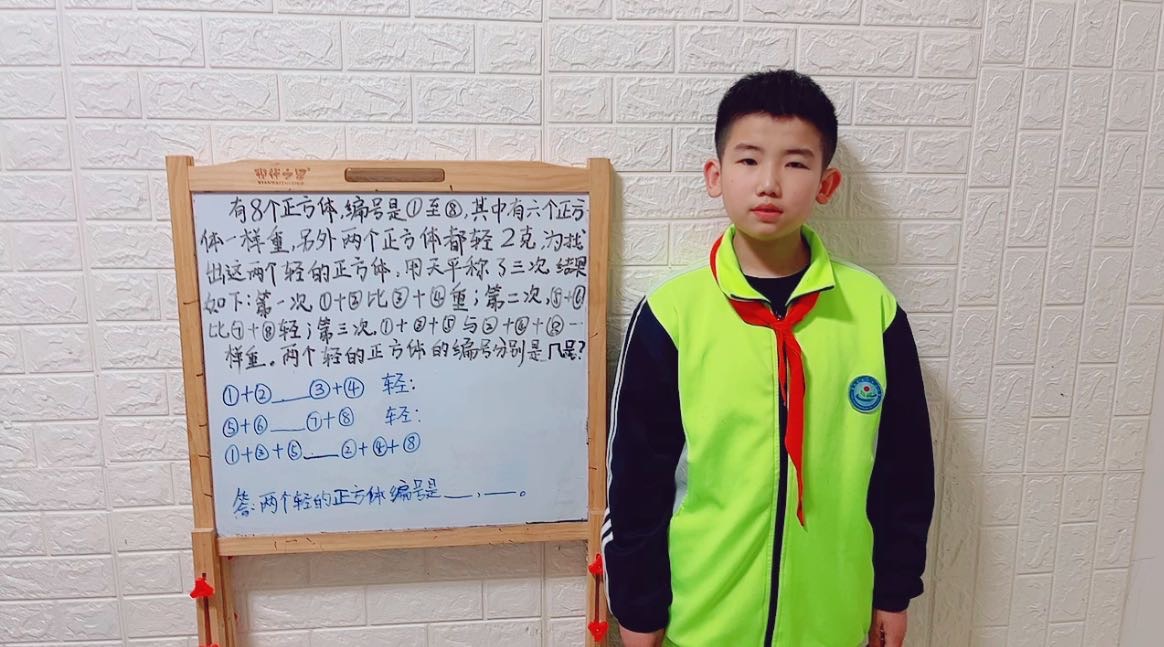 有8个正方体,编号是①至⑧,其中有六个正方
体一样重,另外两个正方体都轻2克,为找
出这两个轻的正方体,用天平称了三次,结果
如下:第一次,①+②比③+④重;第二次,⑤+⑥
比⑦+⑧轻;第三次,①+③+⑤与②+④+⑧一
样重。两个轻的正方体的编号分别是几是?
①+②___③+④ 轻:
⑤+⑥___⑦+⑧ 轻:
①+③+⑤___②+④+⑧
答:两个轻的正方体编号是___,___。